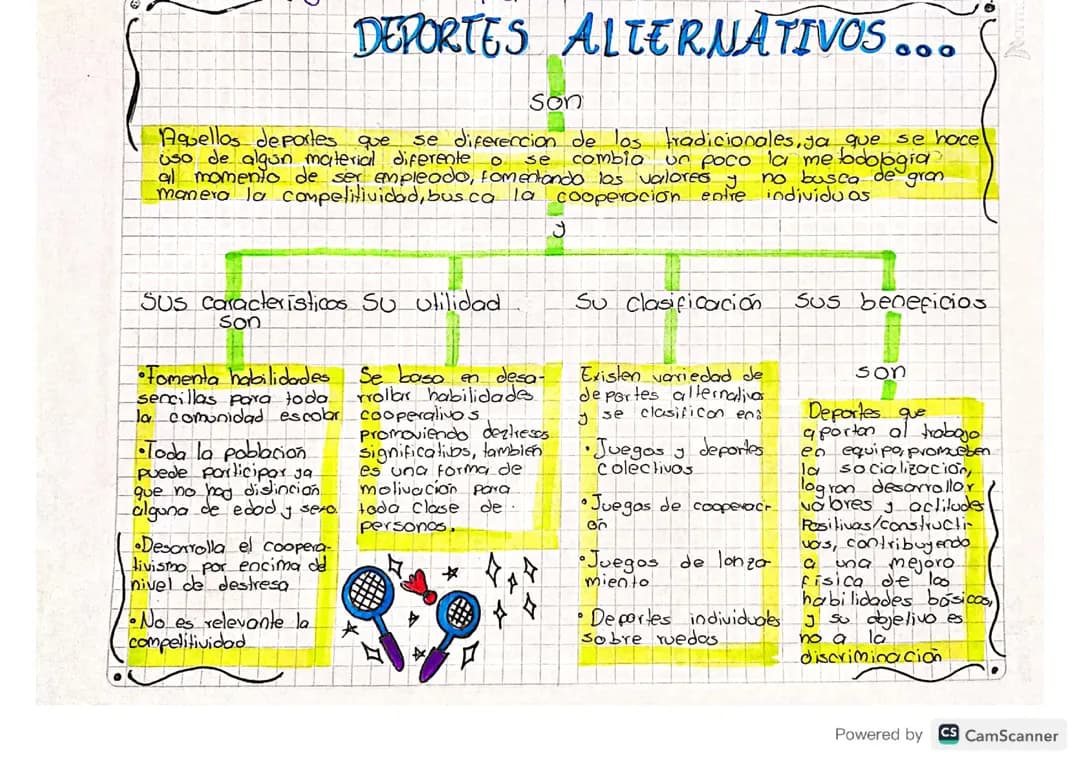 DEPORTES ALTERNATIVOS...
son
Aquellos deportes que se difereccion de los tradicionales, ya que se hace
uso de algun material diferente o se cambia un poco la metodología
al momento de ser empleado, fomentando los valores y no busca de gran
manera la competitividad, busca la cooperación entre individuos
y
sus características
son
•Fomenta habilidades
sencillas para toda
la comunidad escolar
•Toda la población
puede participar ya
que no hay distinción
alguna de edad y sexo.
•Desarrolla el coopera-
tivismo por encima del
nivel de destresa
•No es relevante la
competitividad
su utilidad
Se basa en desa-
rrollar habilidades
cooperativas
promoviendo deztresas
significativas, también
es una forma de
motivación para
toda clase de
personas.
su clasificación
Existen variedad de
deportes alternativa
y se clasifican en:
•Juegos y deportes
colectivos
•Juegos de cooperaci-
ón
•Juegos de lanza-
miento
•Deportes individuales
sobre ruedas
sus beneficios
son
Deportes que
aportan al trabajo
en equipo, promueben
la socialización,
logran desarrollar
valores y actitudes
Positivas/constructi-
vas, contribuyendo
a una mejora
física de las
habilidades básicas,
y su objetivo es
no a la
discriminación
Powered by CS CamScanner